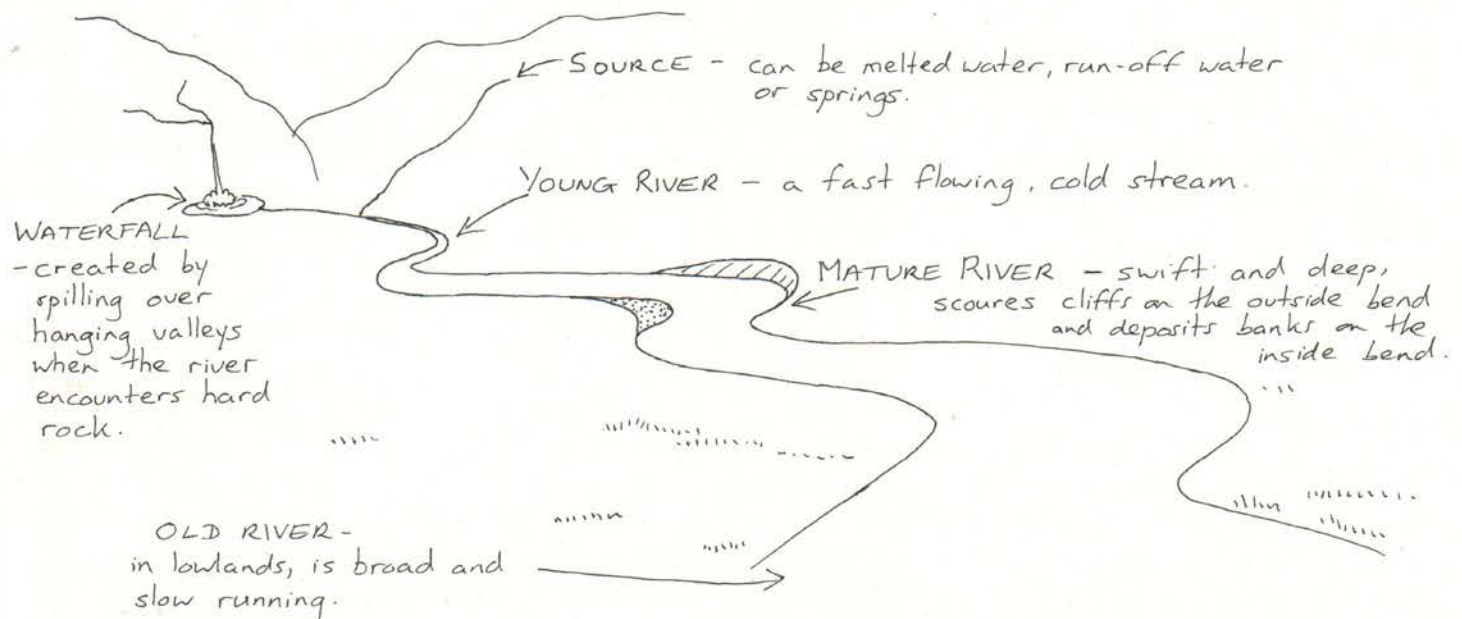 SOURCE - can be melted water, run-off water
or springs.
YOUNG RIVER - a fast flowing, cold stream.
WATERFALL
- created by
spilling over
hanging valleys
when the river
encounters hard
rock.
MATURE RIVER - swift and deep,
scoures cliffs on the outside bend
and deposits banks on the
inside bend.
OLD RIVER -
in lowlands, is broad and
slow running.